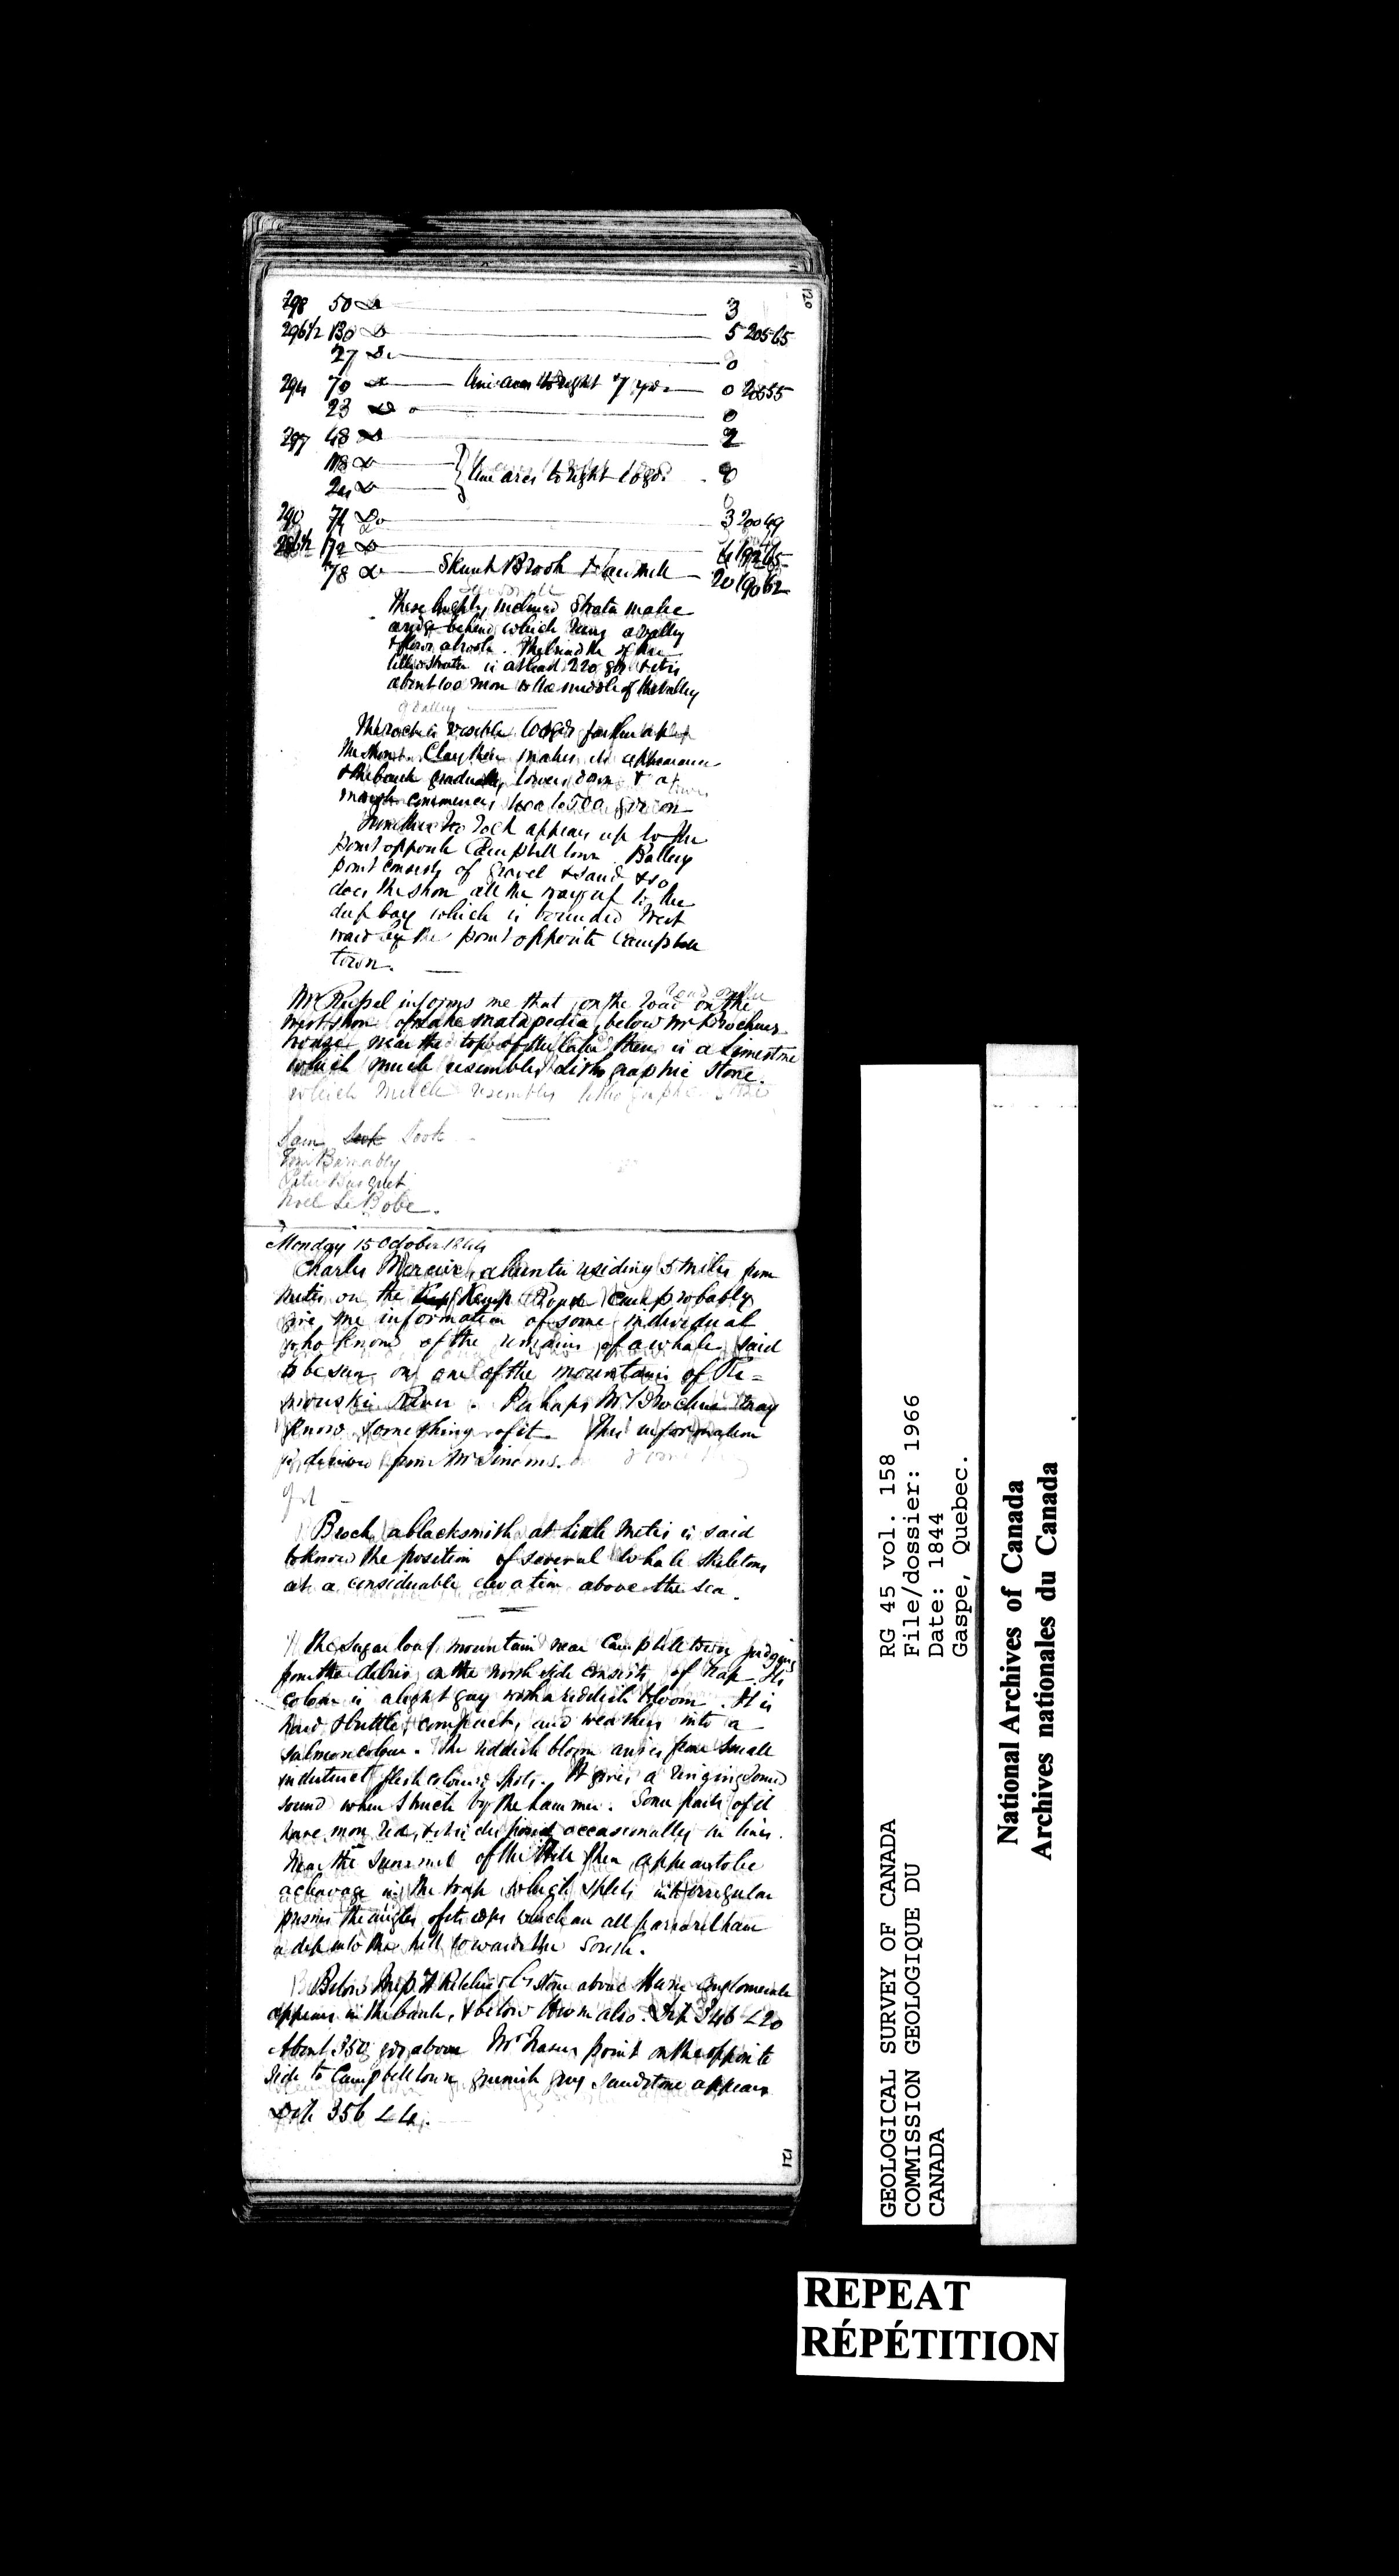 120
298 50 Do 3
296 1/2 130 Do 5 20565
27 Do 0
294 70 Do line arcs to right 7 yds 0 20555
23 Do 0
297 48 Do 2
118 Do
24 Do line arcs to right 10 yds. 0
290 74 Do 3 20049
286 1/2 172 Do 4
78 Do Skunk Brook & saw mill 20
These highly inclined Strata make
a ridge behind which runs a valley
& flows a brook. The breadth of the
strata is at least 220 yds & it is
about 100 more to the middle of the valley
of valley
The rock is visible 100 yds farther up
the shore. Clay then makes its appearance
& the bank gradually lowers down & a
marsh commences, 400 to 500 yds on
From this no rock appears up to the
point opposite Campbell town. Battery
point consists of gravel & sand & so
does the shore all the way up to the
deep bay which is bounded West
ward by the point opposite Campbell
town.
Mr Russel informs me that on the road on the
west shore of Lake Matapedia, below Mr Brochus
house near the top of the lake there is a Limestone
which much resembles lithographic stone.
which much resembles lithographic stone
Sam Sook Sook
Tom Barnably
Peter Basquet
Noel Le Bobe.
Monday 15 October 1844
Charles Mercier, a hunter residing 5 miles from
Metis on the Kemp Route can probably
give me information of some individual
who knows of the remains of a whale said
to be seen on one of the mountains of Ri=
mouski River. Perhaps Mr Brochu may
know something of it. This information
is derived from Mr Simoms.
Beach a blacksmith at Little Metis is said
to know the position of several whale skeletons
at a considerable elevation above the sea.
The Sugar loaf mountain near Campbell town judging
from the debris on the north side consists of trap. Its
colour is a light gray with a reddish bloom. It is
hard & brittle, compact, and weathers into a
salmon colour. The reddish bloom arises from small
indistinct flesh coloured spots. It gives a ringing sound
sound when struck by the hammer. Some parts of it
have more red, & it is disposed occasionally in lines.
Near the summit of the hill there appears to be
a cleavage in the trap which splits into irregular
prisms the angles of its edges which are all parallel have
a dip into the hill towards the South.
Below Ferguson's store above conglomerate
appears in the bank, & below them also. Dip 346 < 20
About 350 yds above Mr Frasers point on the opposite
side to Campbell town greenish gray sandstone appears
Dip 356 < 4.
121
RG 45 vol. 158
File/dossier: 1966
Date: 1844
Gaspe, Quebec.
GEOLOGICAL SURVEY OF CANADA
COMMISSION GEOLOGIQUE DU
CANADA
National Archives of Canada
Archives nationales du Canada
REPEAT
RÉPÉTITION